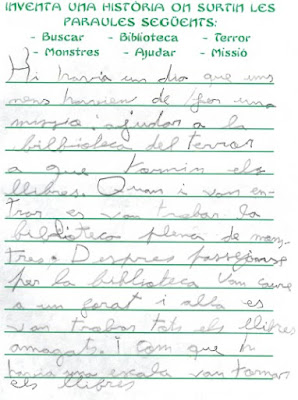 INVENTA UNA HISTÒRIA ON SURTIN LES
PARAULES SEGÜENTS:
- Buscar - Biblioteca - Terror
- Monstres - Ajudar - Missió
Hi havia un dia que uns
nens havien de fer una
missió: ajudar a la
bilblioteca del terror
a que tornin els
llibres. Quan i van en-
trar es van trobar la
biblioteca plena de mons-
tres. Despres passejanse
per la biblioteca van caure
a un forat i alla es
van trobar tots els llibres
amagats. I com que hi
havia una escala van tornar
els llibres